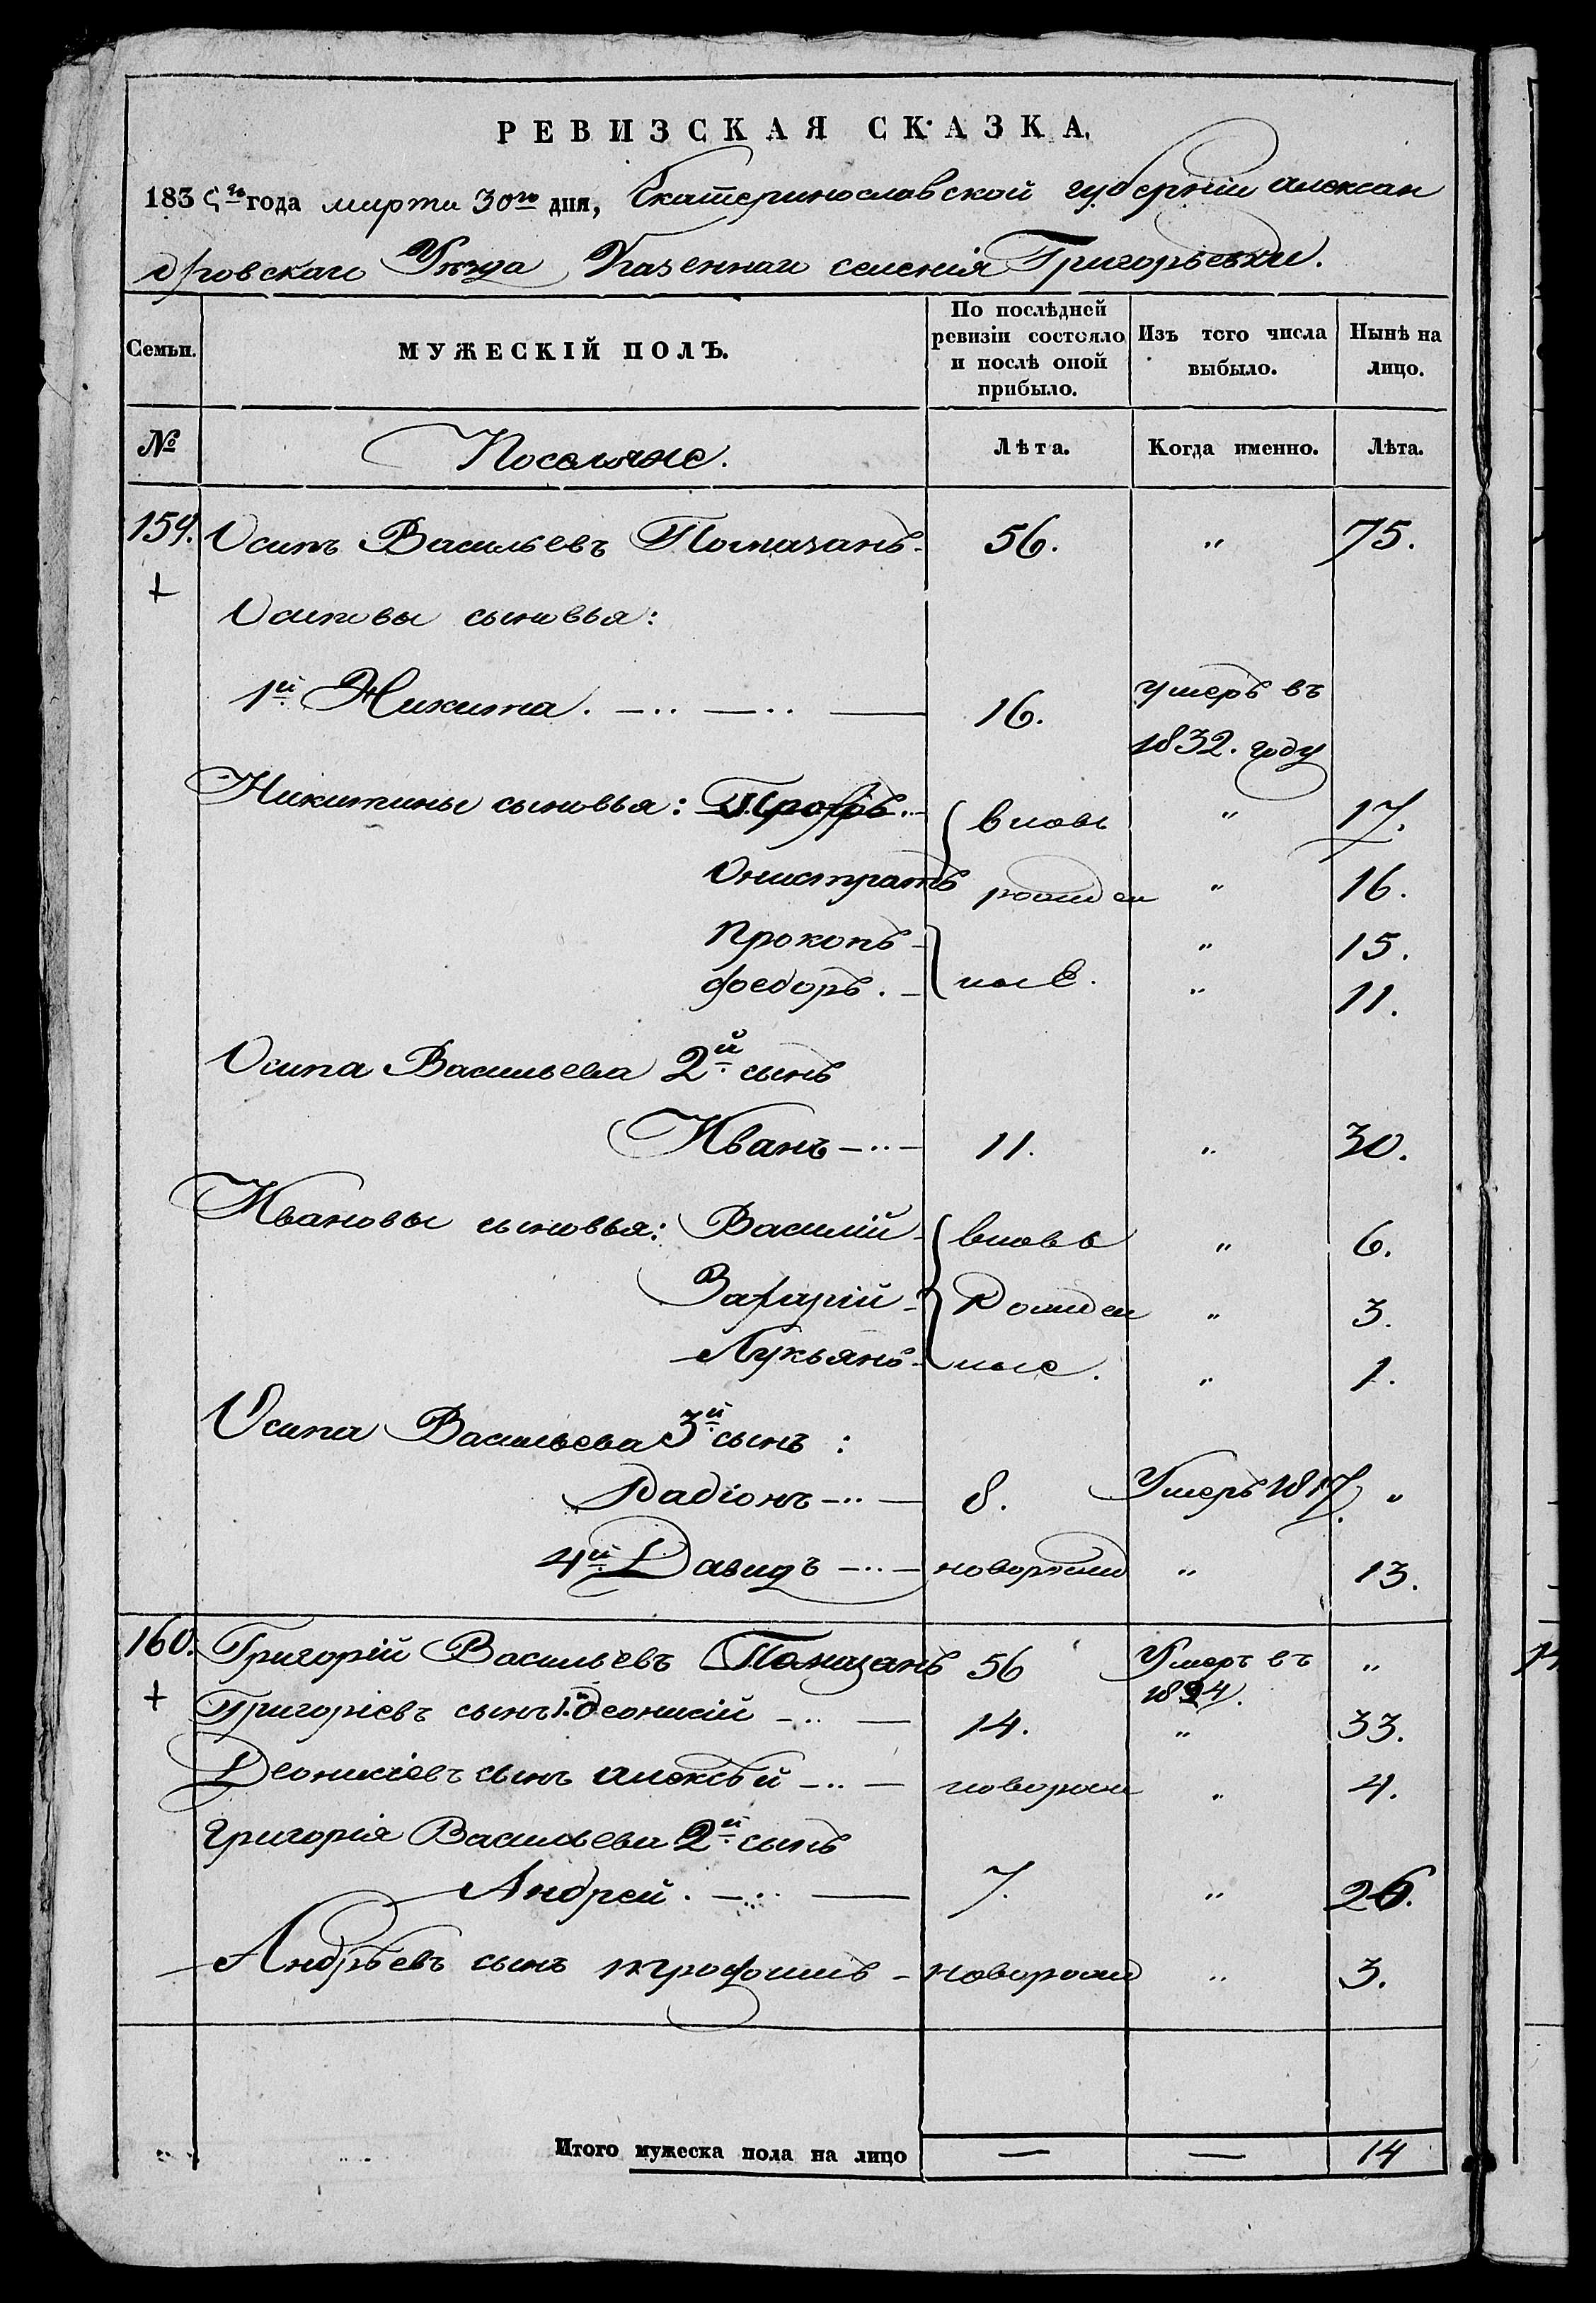 РЕВИЗСКАЯ СКАЗКА.
1835го года марта 30го дня, Екатеринославской губернии алексан
дровскаго Уезда Казеннаго селения Григорьевки.
Семьи.
МУЖЕСКІЙ ПОЛЪ.
По послѣдней ревизіи состояло и послѣ оной прибыло.
Изъ того числа выбыло.
Нынѣ на лицо.
№
Поселяне.
Лѣта.
Когда именно.
Лѣта.
159. Осипъ Васильевъ Помазанъ 56. " 75.
Осиповы сыновья:
1й Никита. 16. умеръ въ
1832. году
Никитины сыновья: Трофъ { вновь " 17.
Онистратъ рожден " 16.
Прокопъ " 15.
Федоръ. ные. " 11.
Осипа Васильева 2й сынъ
Иванъ 11. " 30.
Ивановы сыновья: Василій { вновь " 6.
Захарій рожден " 3.
Лукьянъ ные. " 1.
Осипа Васильева 3й сынъ:
Радіонъ 8. Умеръ 1817. "
4й Давидъ новорожд " 13.
160. Григорій Васильевъ Помазанъ 56 Умеръ въ "
1824.
Григоріевъ сынъ 1й Деонисій 14. " 33.
Деонисіевъ сынъ алексѣй новорож " 4.
Григорія Васильева 2й сынъ
Андрей. 7. " 26.
Андрѣевъ сынъ трофимъ новорожд " 3.
Итого мужеска пола на лицо — — 14